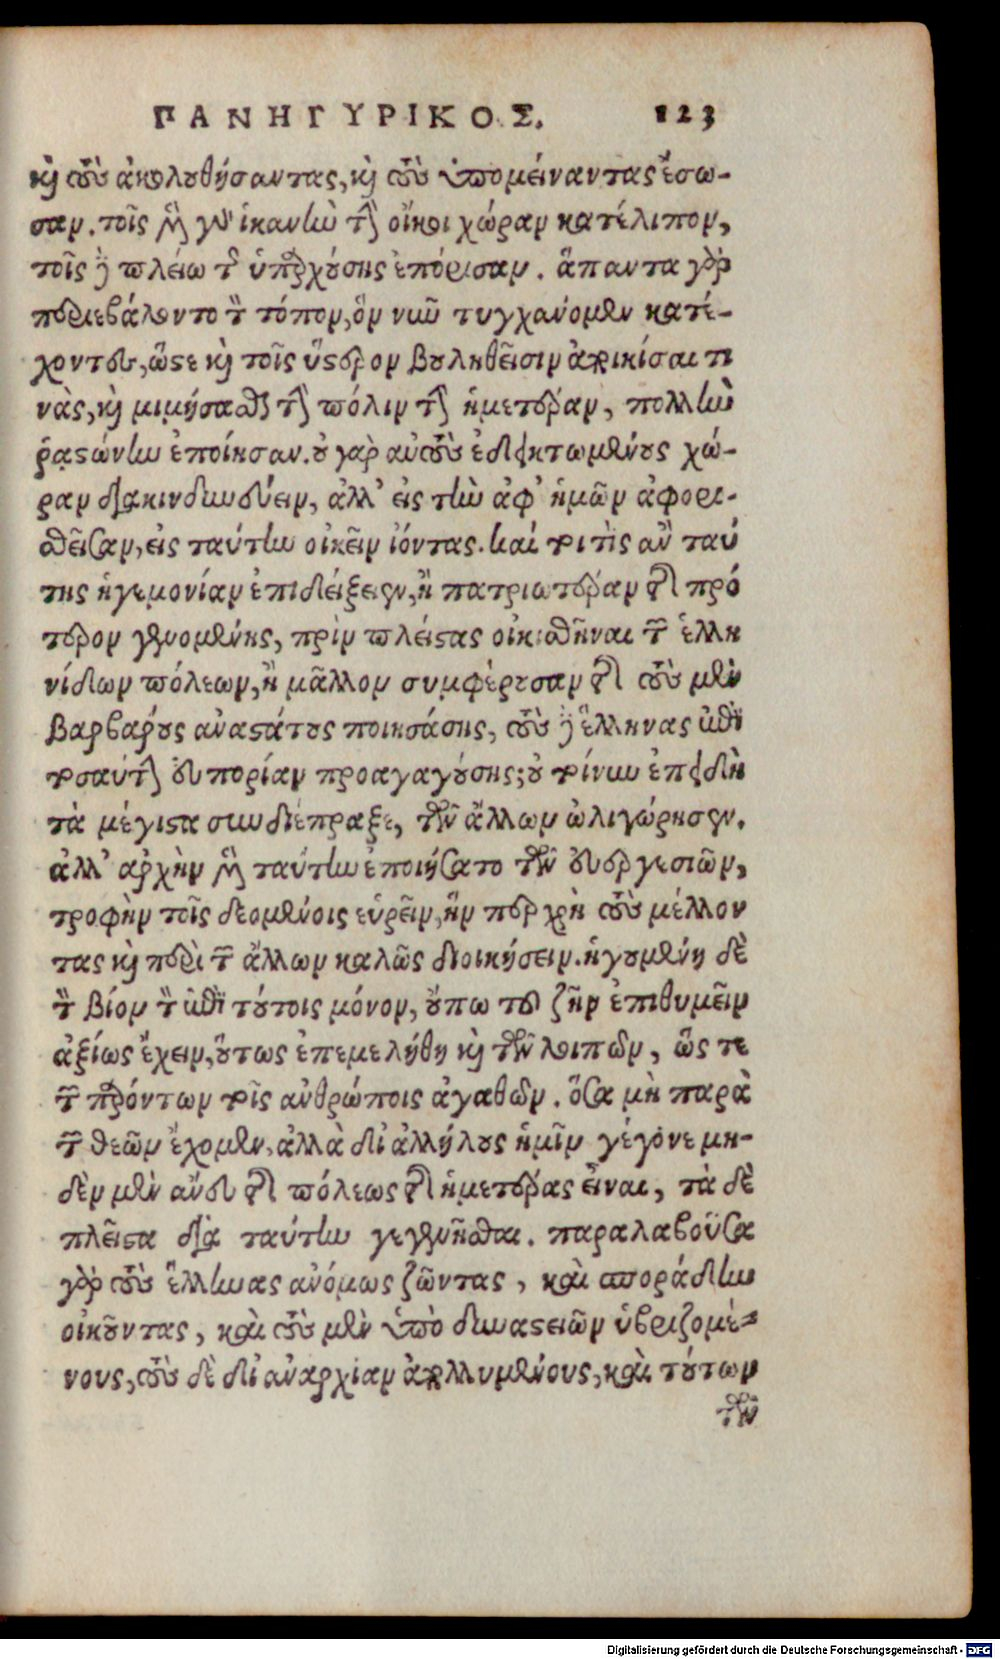 ΠΑΝΗΓΥΡΙΚΟΣ. 123
καὶ τοὺς ἀκολουθήσαντας, καὶ τοὺς ὑπομείναντας ἔσω-
σαν. τοῖς μὲν γὰρ ἱκανὴν τὴν οἴκοι χώραν κατέλιπον,
τοῖς δὲ πλείω τῆς ὑπαρχούσης ἐπόρισαν. ἅπαντα γὰρ
περιεβάλοντο τὸν τόπον, ὃν νῦν τυγχάνομεν κατέ-
χοντες, ὥστε καὶ τοῖς ὕστερον βουληθεῖσιν ἀποικίσαι τι
νὰς, καὶ μιμήσασθαι τὴν πόλιν τὴν ἡμετέραν, πολλὴν
ῥᾳστώνην ἐποίησαν. οὐ γὰρ αὐτοὺς ἔδει κτωμένους χώ-
ραν διακινδυνεύειν, ἀλλ' εἰς τὴν ἀφ' ἡμῶν ἀφορι-
σθεῖσαν, εἰς ταύτην οἰκεῖν ἰόντας. καί τοι τὶς ἂν ταύ
της ἡγεμονίαν ἐπιδείξειεν, ἢ πατριωτέραν τῆς πρό
τερον γενομένης, πρὶν πλείστας οἰκισθῆναι τῶν ἑλλη
νίδων πόλεων, ἢ μᾶλλον συμφέρουσαν τῆς τοὺς μὲν
βαρβάρους ἀναστάτους ποιησάσης, τοὺς δὲ ἕλληνας ἐπὶ
τοσαύτην εὐπορίαν προαγαγούσης; οὐ τοίνυν ἐπειδὴ
τὰ μέγιστα συνδιέπραξε, τῶν ἄλλων ὠλιγώρησεν.
ἀλλ' ἀρχὴν μὲν ταύτην ἐποιήσατο τῶν εὐεργεσιῶν,
τροφὴν τοῖς δεομένοις εὑρεῖν, ἥν περ χρὴ τοὺς μέλλον
τας καὶ περὶ τῶν ἄλλων καλῶς διοικήσειν. ἡγουμένη δὲ
τὸν βίον τὸν ἐπὶ τούτοις μόνον, οὔπω τοῦ ζῆν ἐπιθυμεῖν
ἀξίως ἔχειν, οὕτως ἐπεμελήθη καὶ τῶν λοιπῶν, ὥς τε
τῶν παρόντων τοῖς ἀνθρώποις ἀγαθῶν. ὅσα μὴ παρὰ
τῶν θεῶν ἔχομεν, ἀλλὰ δι' ἀλλήλους ἡμῖν γέγονε μη-
δὲν μὲν ἄνευ τῆς πόλεως τῆς ἡμετέρας εἶναι, τὰ δὲ
πλεῖστα διὰ ταύτην γεγενῆσθαι. παραλαβοῦσα
γὰρ τοὺς ἕλληνας ἀνόμως ζῶντας, καὶ σποράδην
οἰκοῦντας, καὶ τοὺς μὲν ὑπὸ δυναστειῶν ὑβριζομέ-
νους, τοὺς δὲ δι' ἀναρχίαν ἀπολλυμένους, καὶ τούτων
τῶν
Digitalisierung gefördert durch die Deutsche Forschungsgemeinschaft - DFG